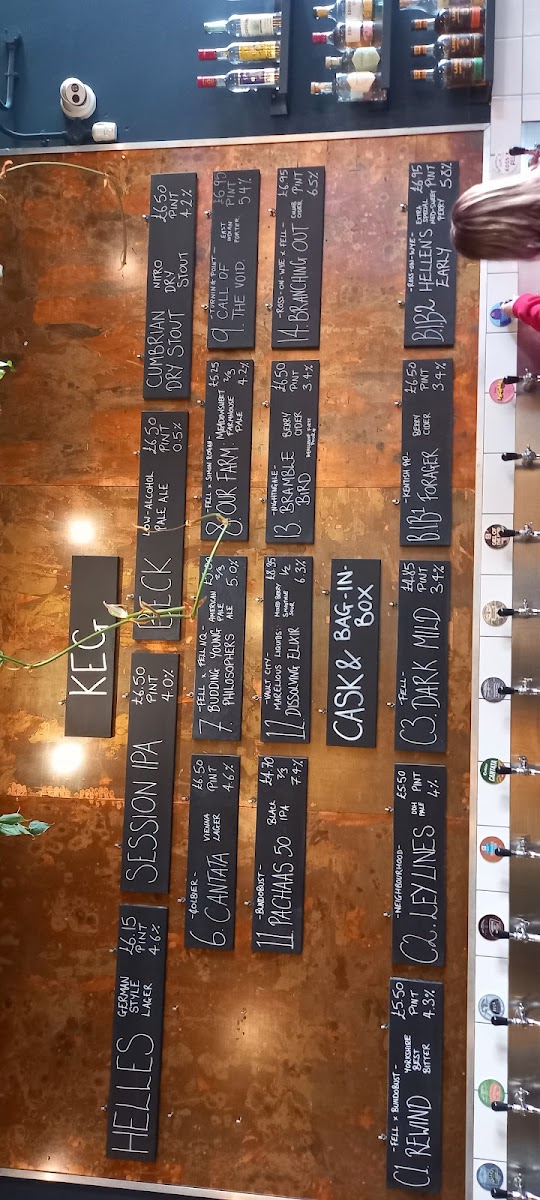 KEG
HELLES
GERMAN
STYLE
LAGER
£6.15
PINT
4.6%
SESSION IPA
£6.50
PINT
4.0%
BECK
LOW-ALCOHOL
PALE ALE
£6.50
PINT
0.5%
CUMBRIAN
DRY STOUT
NITRO
DRY
STOUT
£6.50
PINT
4.2%
6. CANTATA
VIENNA
LAGER
£6.50
PINT
4.6%
- FELL x FELL HQ -
7. BUDDING YOUNG
PHILOSOPHERS
AMERICAN
PALE
ALE
2/3
5.0%
8. OUR FARM
MEADOWSWEET
FARMHOUSE
PALE
£5.25
2/3
4.2%
- TURNING POINT -
9. CALL OF
THE VOID.
EAST
INDIAN
PORTER
£6.95
PINT
5.4%
- BUNDOBUST -
11. PACHAAS 50
BLACK
IPA
£4.70
2/3
7.4%
- VAULT CITY -
MARVELLOUS LIQUIDS:
12. DISSOLVING ELIXIR
MIXED BERRY
SOUR
£8.95
1/2
6.3%
- NIGHTINGALE -
13. BRAMBLE
BIRD
BERRY
CIDER
£6.50
PINT
3.4%
- ROSS-ON-WYE x FELL -
14. BRANCHING OUT
CIDER
£6.95
PINT
6.5%
CASK & BAG-IN-
BOX
- FELL x BUNDOBUST -
C1. REWIND
YORKSHIRE
BEST
BITTER
£5.50
PINT
4.3%
- NEIGHBOURHOOD -
C2. LEYLINES
DDH
PALE
£5.50
PINT
4%
- FELL -
C3. DARK MILD
£4.85
PINT
3.4%
- KENTISH PIP -
BIB1 FORAGER
BERRY
CIDER
£6.50
PINT
3.4%
- ROSS-ON-WYE -
BIB2 HELLEN'S
EARLY
EXTRA
SPECIAL
MED-SWEET
PERRY
£6.95
PINT
5.8%